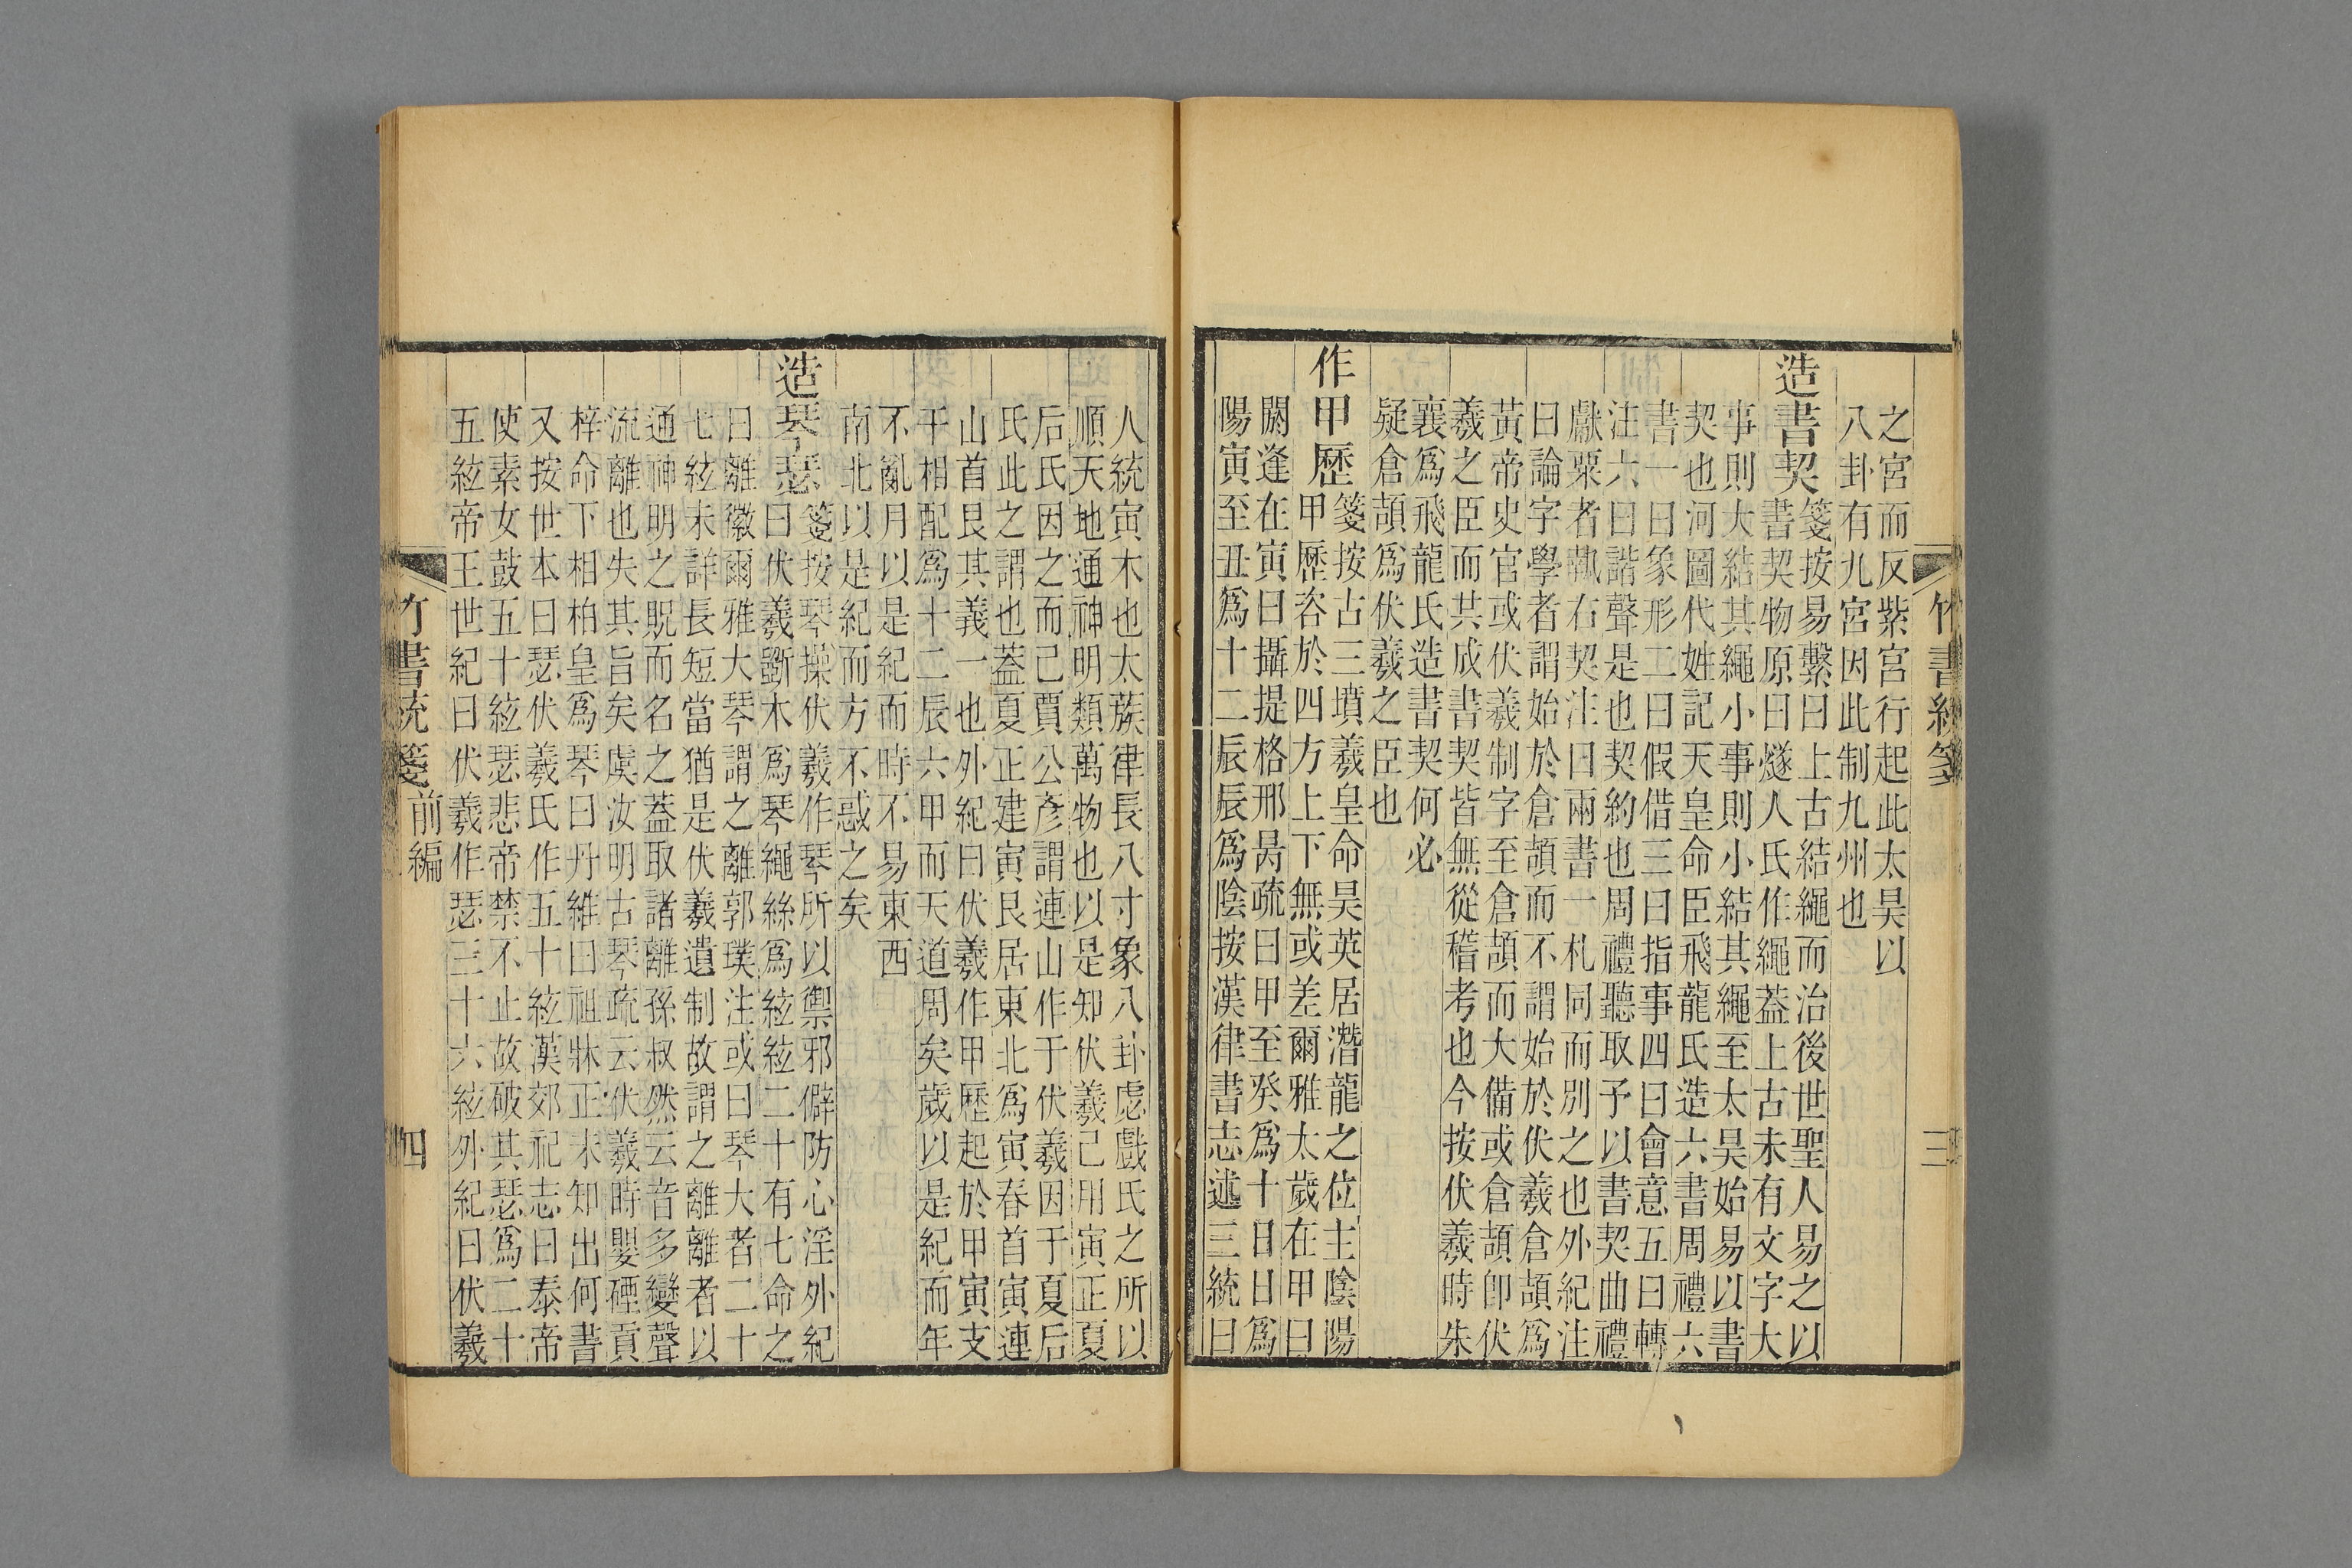 之宮而反紫宮行起此太昊以
八卦有九宮因此制九州也
造書契
箋按易繫曰上古結繩而治後世聖人易之以
書契物原曰燧人氏作繩蓋上古未有文字大
事則大結其繩小事則小結其繩至太昊始易以書
契也河圖代姓記天皇命臣飛龍氏造六書周禮六
書一曰象形二曰假借三曰指事四曰會意五曰轉
注六曰諧聲是也契約也周禮聽取予以書契曲禮
獻粟者執右契注曰兩書一札同而別之也外紀注
曰論字學者謂始於倉頡而不謂始於伏羲倉頡爲
黃帝史官或伏羲制字至倉頡而大備或倉頡卽伏
羲之臣而共成書契皆無從稽考也今按伏羲時朱
襄爲飛龍氏造書契何必
疑倉頡爲伏羲之臣也
作甲歷
箋按古三墳羲皇命昊英居潛龍之位主陰陽
甲歷咨於四方上下無或差爾雅太歲在甲曰
閼逢在寅曰攝提格邢昺疏曰甲至癸爲十日日爲
陽寅至丑爲十二辰辰爲陰按漢律書志述三統曰
竹書統箋
三
人統寅木也太蔟律長八寸象八卦虙戲氏之所以
順天地通神明類萬物也以是知伏羲已用寅正夏
后氏因之而已賈公彥謂連山作于伏羲因于夏后
氏此之謂也蓋夏正建寅艮居東北爲寅春首寅連
山首艮其義一也外紀曰伏羲作甲歷起於甲寅支
干相配爲十二辰六甲而天道周矣歲以是紀而年
不亂月以是紀而時不易東西
南北以是紀而方不惑之矣
造琴瑟
箋按琴操伏羲作琴所以禦邪僻防心淫外紀
曰伏羲斲木爲琴繩絲爲絃絃二十有七命之
曰離徽爾雅大琴謂之離郭璞注或曰琴大者二十
七絃未詳長短當猶是伏羲遺制故謂之離離者以
通神明之貺而名之蓋取諸離孫叔然云音多變聲
流離也失其旨矣虞汝明古琴疏云伏羲時㜲硾貢
梓命下相柏皇爲琴曰丹維曰祖牀正未知出何書
又按世本曰瑟伏羲氏作五十絃漢郊祀志曰泰帝
使素女鼓五十絃瑟悲帝禁不止故破其瑟爲二十
五絃帝王世紀曰伏羲作瑟三十六絃外紀曰伏羲
竹書統箋
前編
四